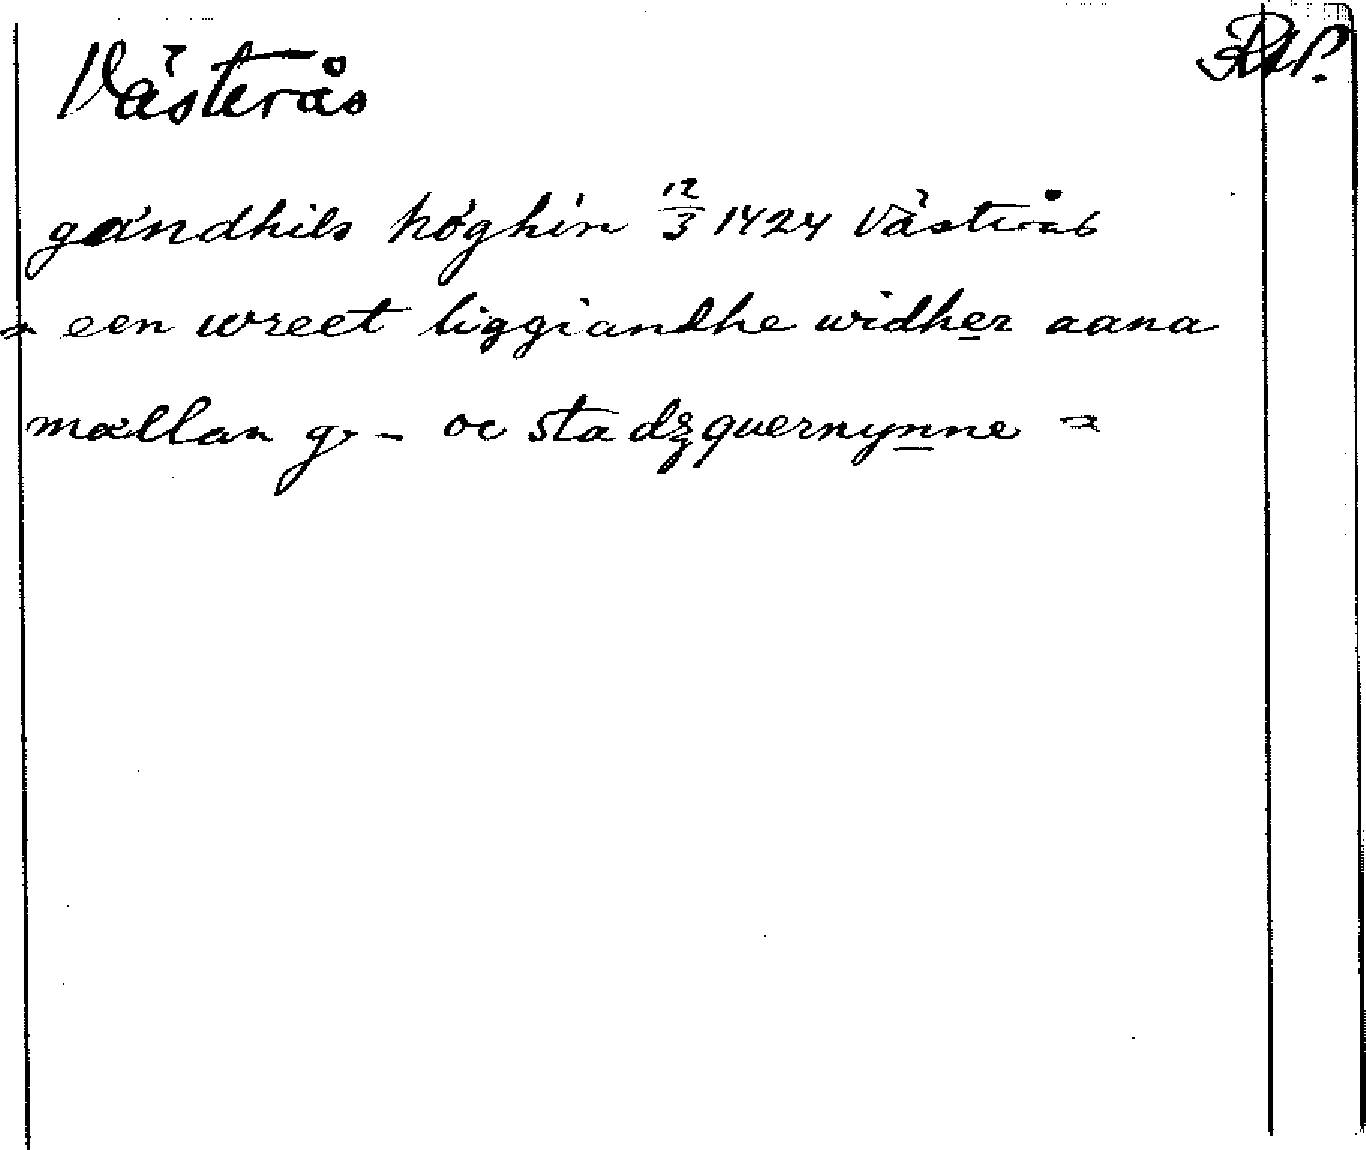 Västerås
RAP.
gändhils höghin 12/3 1424 Västerås
= een wreet liggiandhe widher aana
mællan g - oc stadzquernynne =